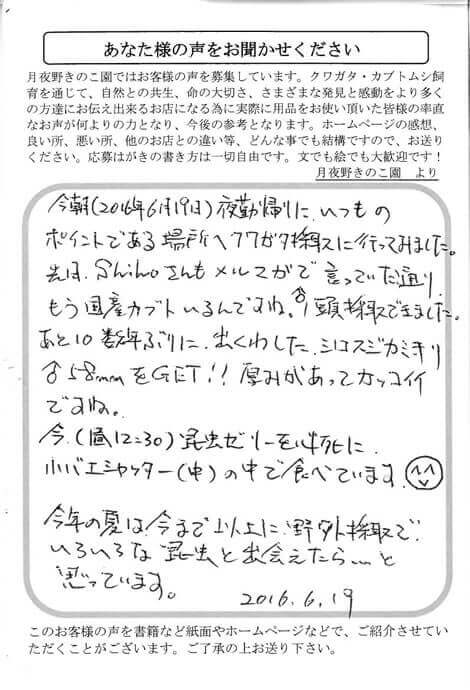 あなた様の声をお聞かせください
月夜野きのこ園ではお客様の声を募集しています。クワガタ・カブトムシ飼
育を通じて、自然との共生、命の大切さ、さまざまな発見と感動をより多く
の方達にお伝え出来るお店になる為に実際に用品をお使い頂いた皆様の率直
なお声が何よりの力となり、今後の参考となります。ホームページの感想、
良い所、悪い所、他のお店との違い等、どんな事でも結構ですので、お送り
ください。応募はがきの書き方は一切自由です。文でも絵でも大歓迎です！
月夜野きのこ園　より
今朝(2016年6月19日)夜勤帰りに、いつもの
ポイントである場所へクワガタ採集に行ってみました。
先日、Shihoさんもメルマガで言っていた通り、
もう国産カブトいるんですね。♂1頭採集できました。
あと10数年ぶりに、出くわした、シロスジカミキリ
♂58mmをGET!! 厚みがあってカッコイイ
ですね。
今、(昼12:30)昆虫ゼリーを必死に、
小バエシャッター(中)の中で食べています。
今年の夏は、今まで以上に、野外採集で、
いろいろな昆虫と出会えたら…と
思っています。
2016.6.19
このお客様の声を書籍など紙面やホームページなどで、ご紹介させてい
ただくことがございます。ご了承の上お送り下さい。